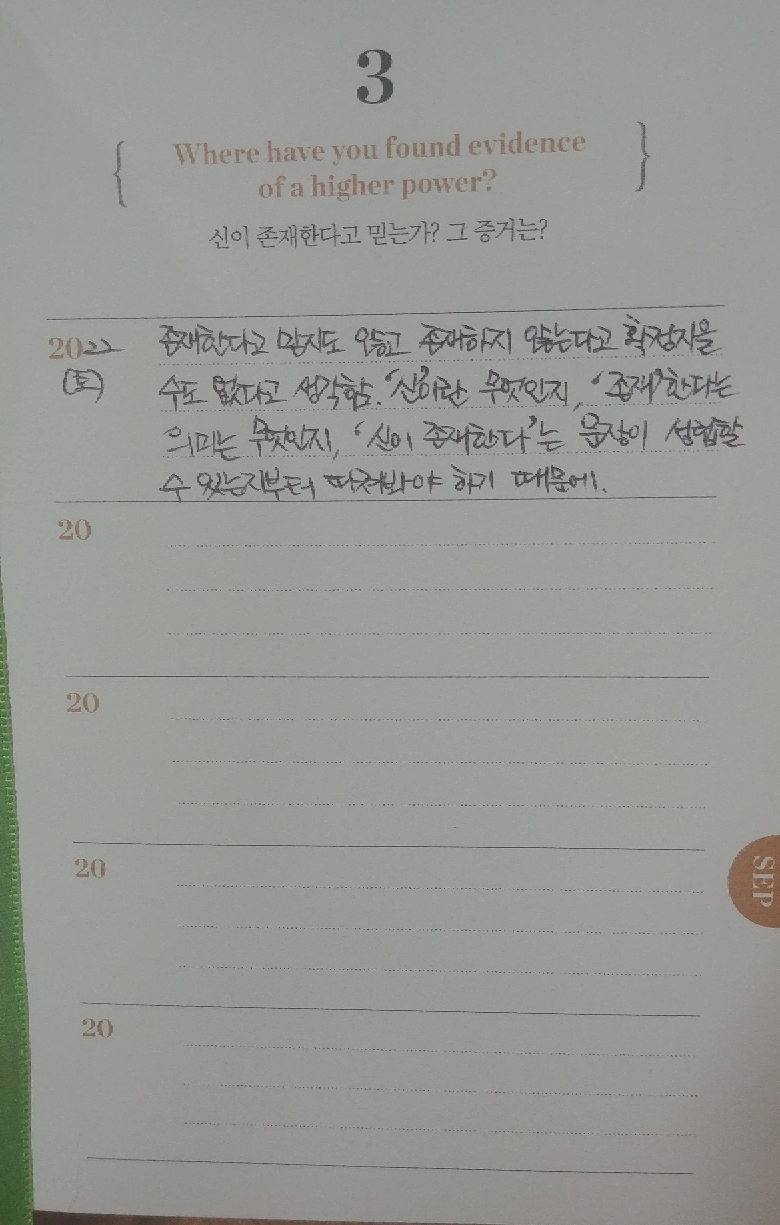 3
Where have you found evidence
of a higher power?
신이 존재한다고 믿는가? 그 증거는?
2022 존재한다고 믿지도 않고 존재하지 않는다고 확정지을
(토) 수도 없다고 생각함. '신'이란 무엇인지, '존재'한다는
의미는 무엇인지, '신이 존재한다'는 문장이 성립할
수 있는지부터 따져봐야 하기 때문에.
20
20
20
20
SEP